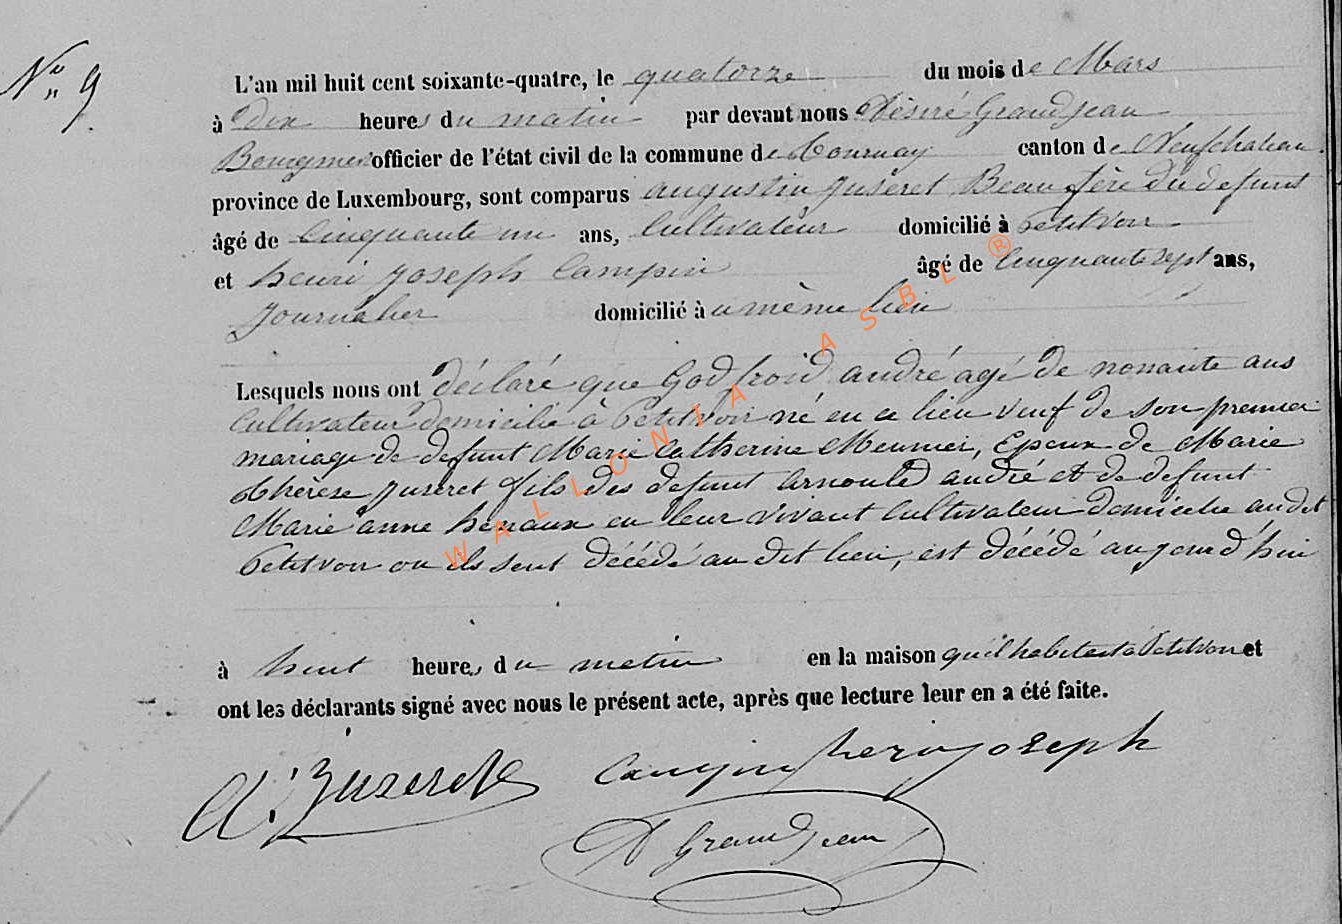 No 9
L'an mil huit cent soixante-quatre, le quatorze du mois de Mars
à Dix heures du matin par devant nous Désiré Grandjean
Bourgmer officier de l'état civil de la commune de Tournay canton de Neufchateau
province de Luxembourg, sont comparus augustin Juseret Beau frère du defunt
âgé de Cinquante un ans, Cultivateur domicilié à Petitvoir
et henri Joseph Campin âgé de Cinquante sept ans,
Journalier domicilié à u même lieu
Lesquels nous ont déclaré que Godfroid andré agé de nonante ans
Cultivateur domicilié à Petitvoir né en ce lieu veuf de son premier
mariage de defunt Marie Catherine Meunier, Epoux de Marie
thérèse Juseret fils des defunt Arnould andré et de defunt
Marie anne henaux en leur vivant Cultivateur domicilié au dit
Petitvoir ou ils sont décédé au dit lieu, est décédé aujourd'hui
à huit heures du matin en la maison qu'il habitait à Petitvoir et
ont les déclarants signé avec nous le présent acte, après que lecture leur en a été faite.
A. Juseret Campin henri joseph
D Grandjean
WALLONIA ASBL ®